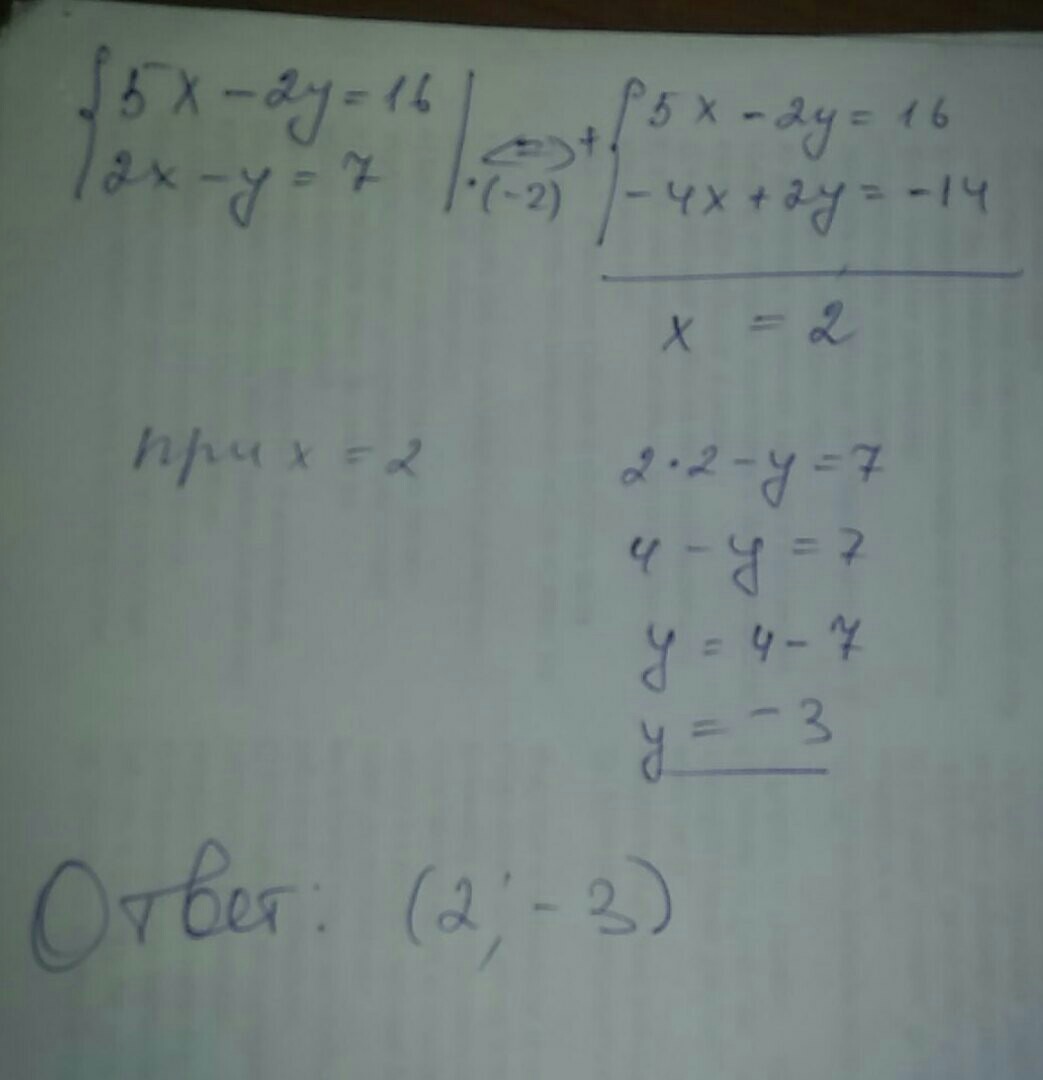 {5x - 2y = 16 | <=> + {5x - 2y = 16
{2x - y = 7 | ·(-2) {-4x + 2y = -14
x = 2
при x = 2 2·2 - y = 7
4 - y = 7
y = 4 - 7
y = -3
Ответ: (2; -3)